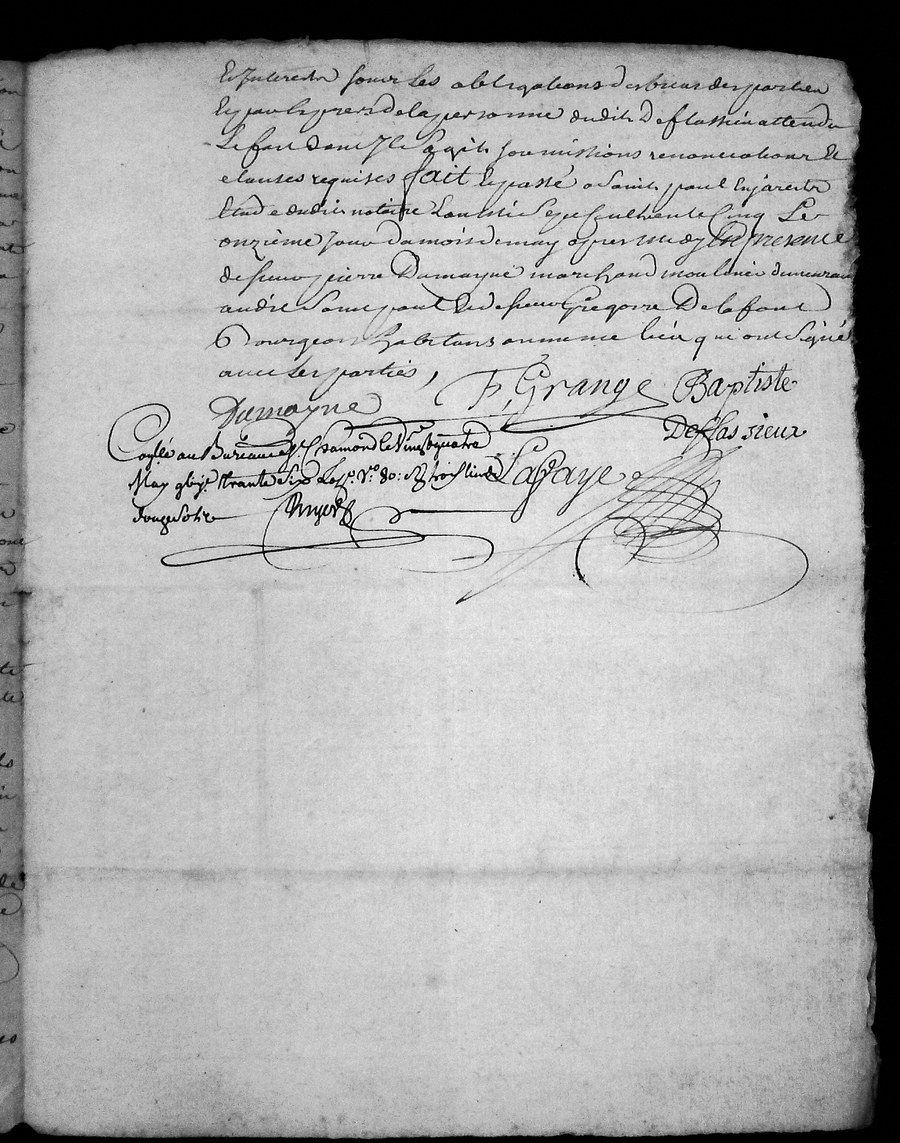 et Interests sous les obligations des biens des parties
et par exprès de la personne dudit Deflassieu attendu
le fait dont Il s'agit soumissions renonciations et
clauses requises fait et passé a Saint paul En jarest
Etude dudit notaire L'an mil Sept Cent trente Cinq Le
onzième Jour du mois de may après midy En presence
de sieur pierre Damayne marchand moulinier
andré Saint paul et de sieur Gregoire Delafont
Bourgeois habitans au meme lieu qui ont Signé
avec Les parties,
Damayne F, Grange Baptiste
Deflassieux
au Bureau de St. Chamond le Vingt quatre
May trente Six Lafaye
douze Sols